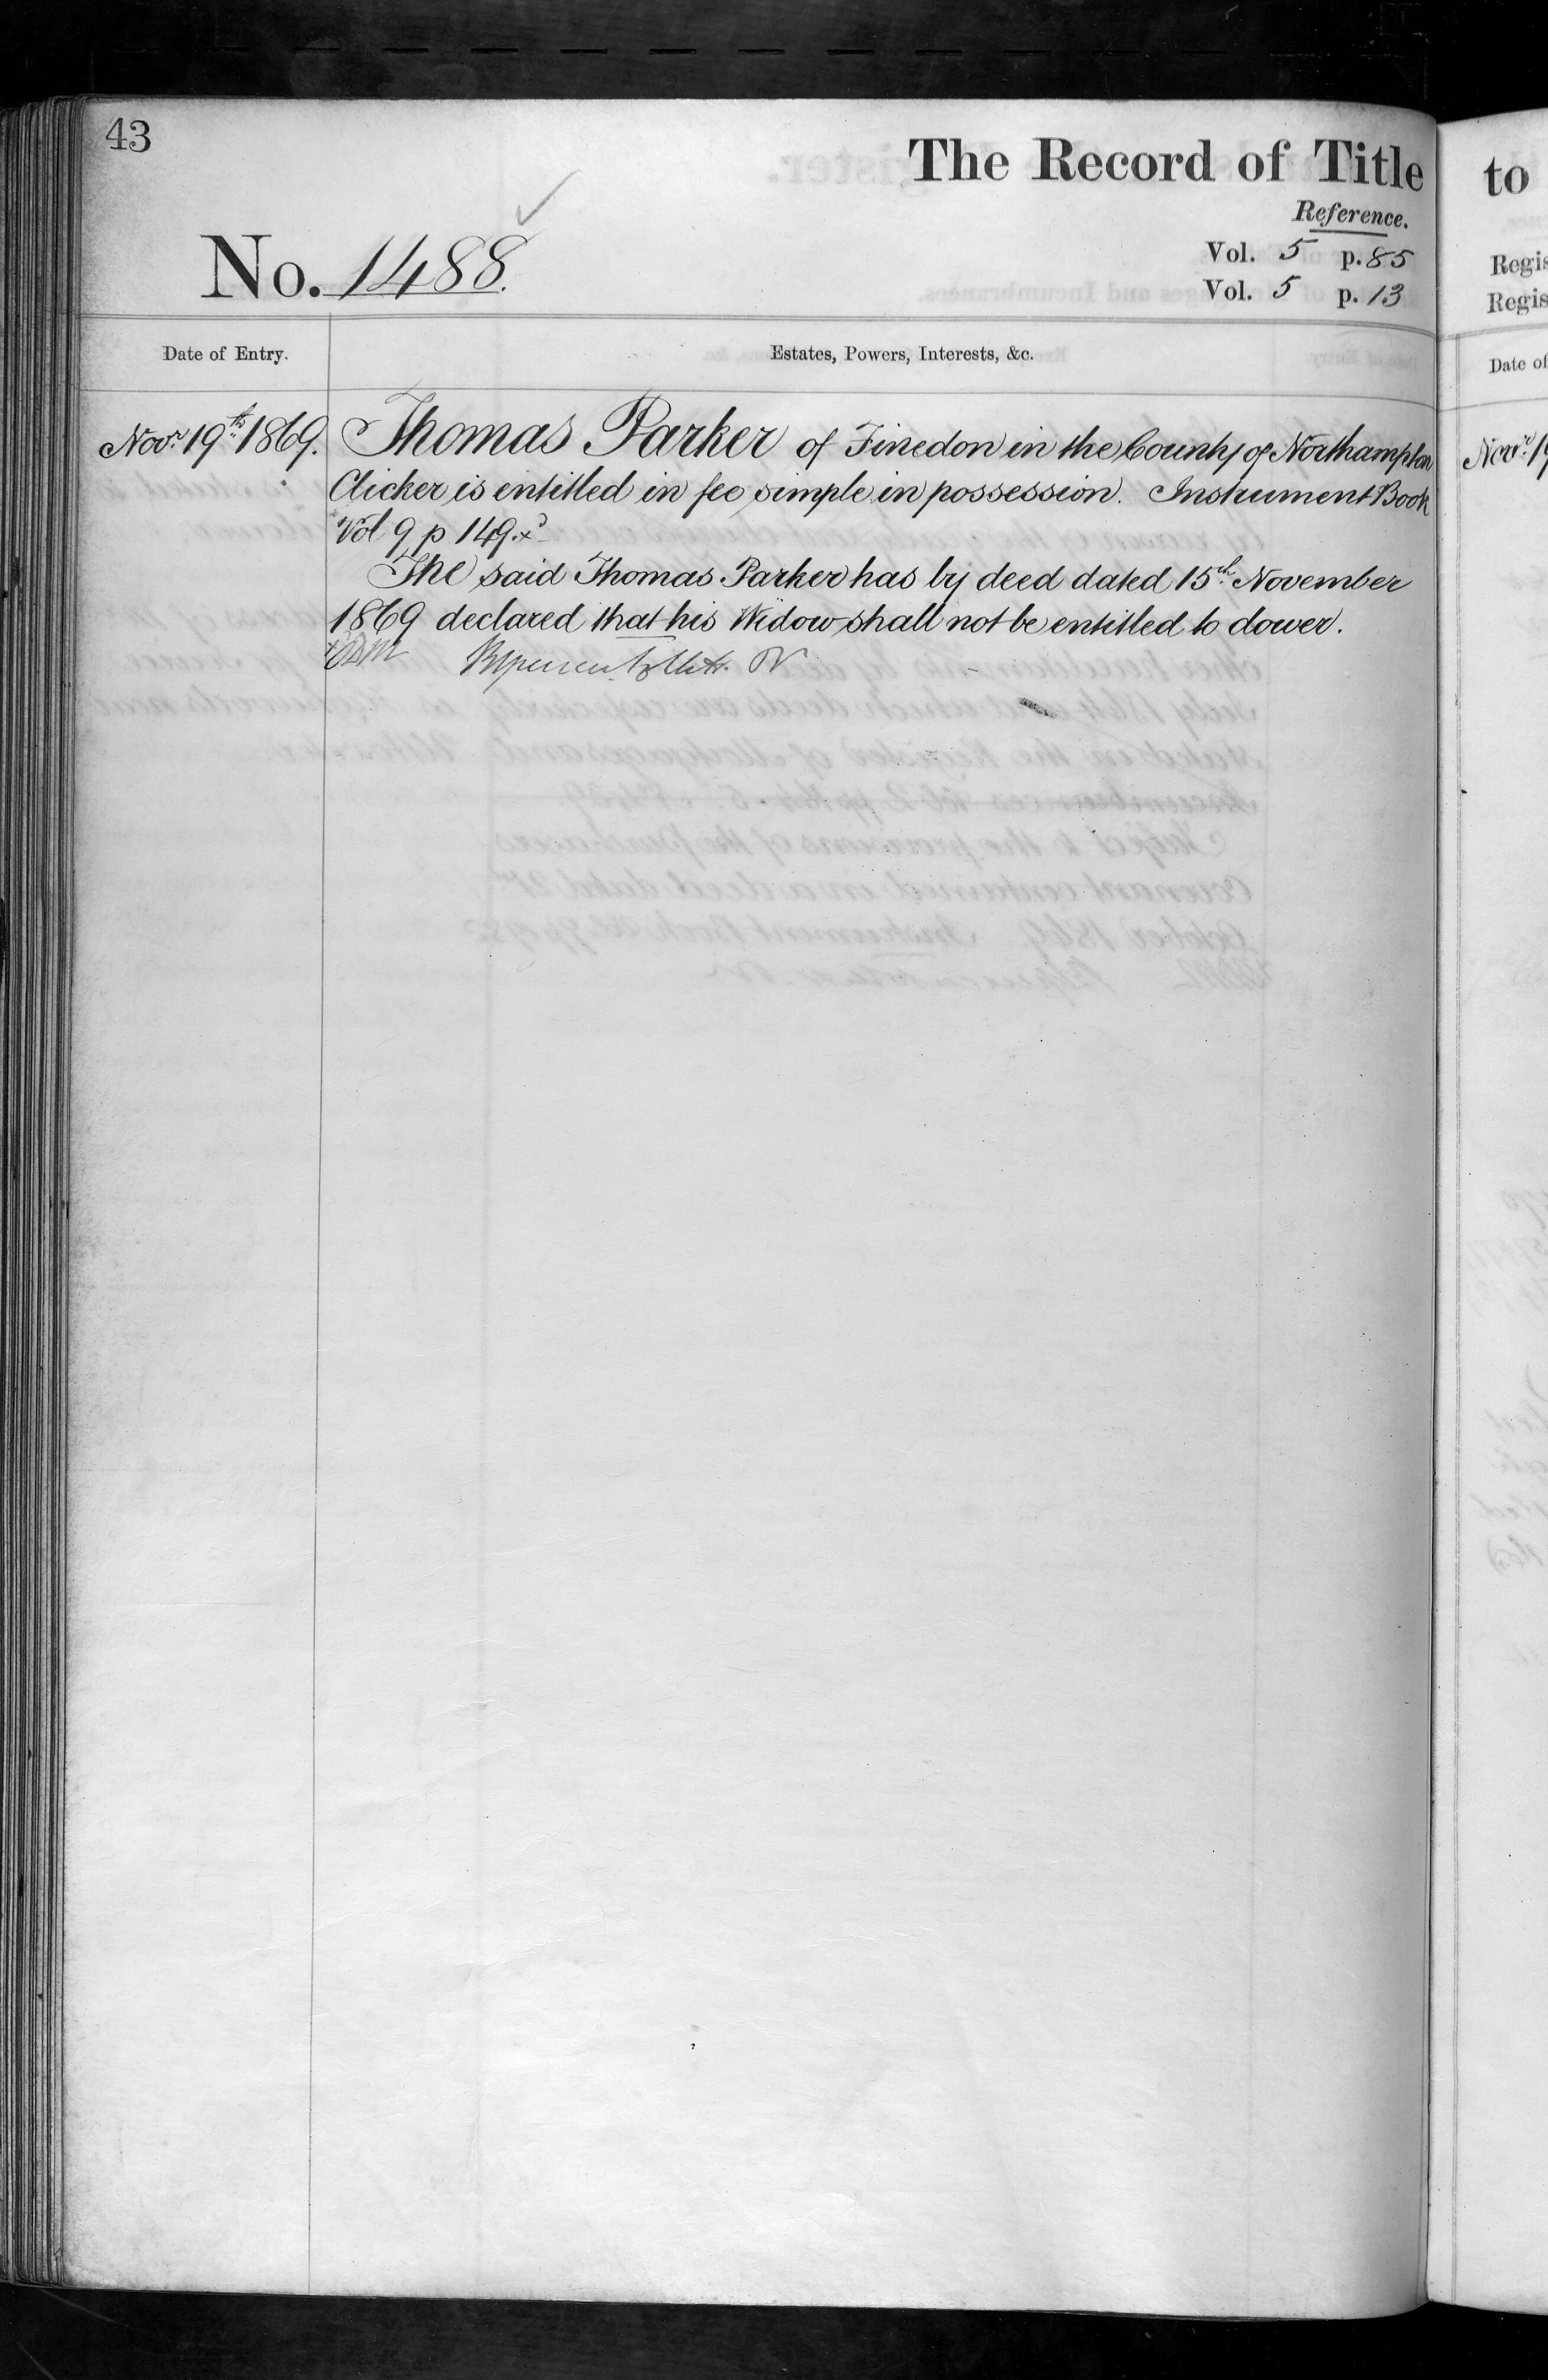 43
The Record of Title
to
Reference.
No. 1488.
Vol. 5 p. 85
Vol. 5 p. 13
Regis
Regis
Date of Entry.
Estates, Powers, Interests, &c.
Date of
Novr. 19th 1869.
Thomas Parker of Finedon in the County of Northampton
Clicker is entitled in fee simple in possession. Instrument Book
Vol 9 p 149.
The said Thomas Parker has by deed dated 15th November
1869 declared that his Widow shall not be entitled to dower.
Novr. 19